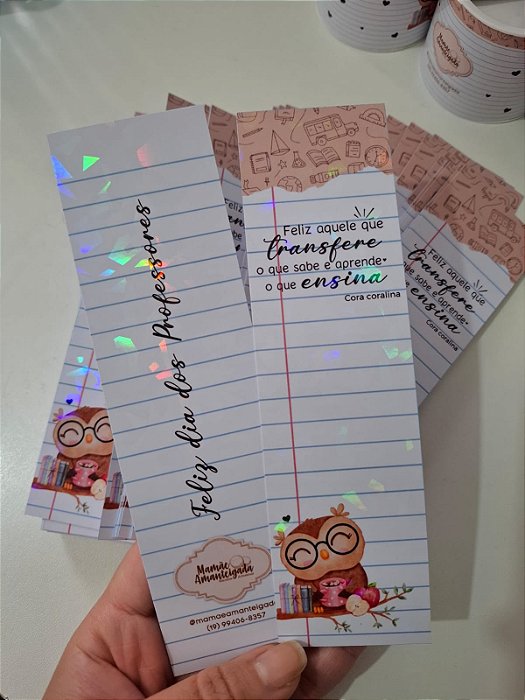 Feliz dia dos Professores
Mamãe
Amanteigada
@mamaeamanteigada
(19) 99406-8357
Feliz aquele que
transfere
o que sabe e aprende
o que ensina
Cora coralina
Feliz aquele que
transfere
o que sabe e aprende
o que ensina
Cora coralina
Mamãe
Amanteigada